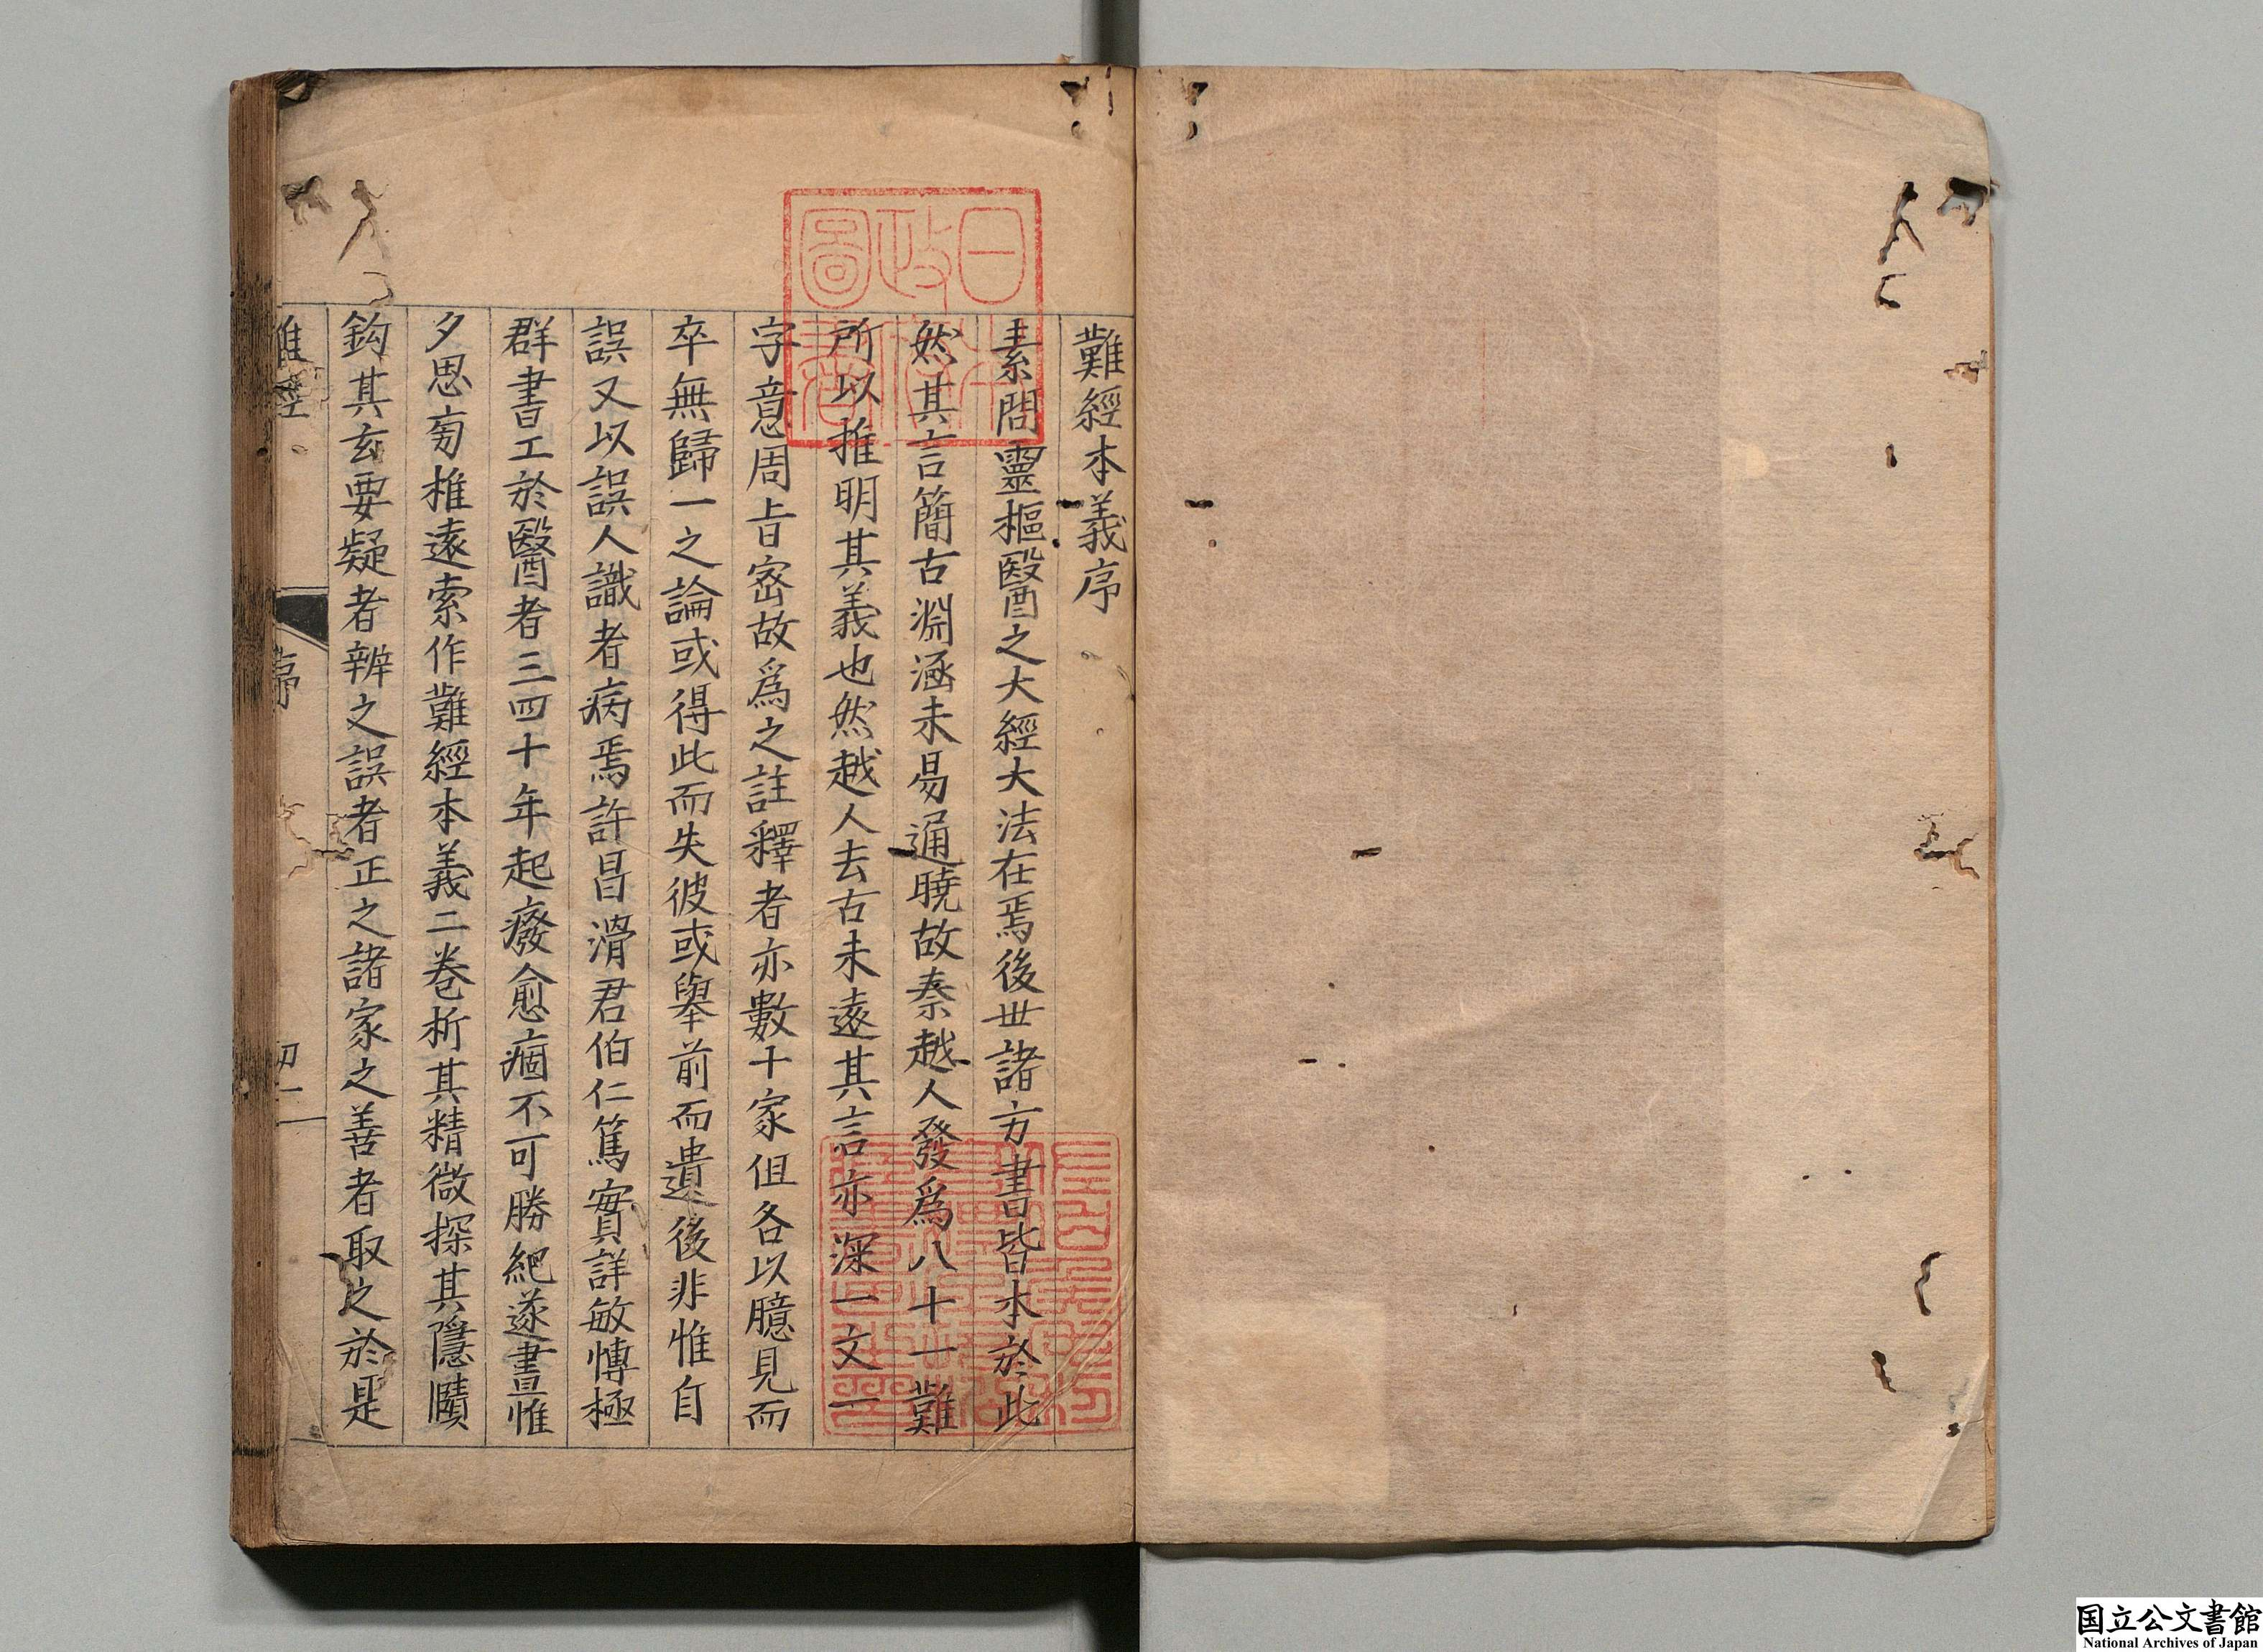 難經本義序
素問靈樞醫之大經大法在焉後世諸方書皆本於此
然其言簡古淵涵未易通曉故秦越人發爲八十一難
所以推明其義也然越人去古未遠其言亦深一文一
字意周旨密故爲之註釋者亦數十家但各以臆見而
卒無歸一之論或得此而失彼或舉前而遺後非惟自
誤又以誤人識者病焉許昌滑君伯仁篤實詳敏愽極
群書工於醫者三四十年起癈愈痼不可勝紀遂晝惟
夕思旁推遠索作難經本義二卷析其精微探其隱賾
鈎其玄要疑者辨之誤者正之諸家之善者取之於是
難經
序
日本政府圖書
国立公文書館
National Archives of Japan